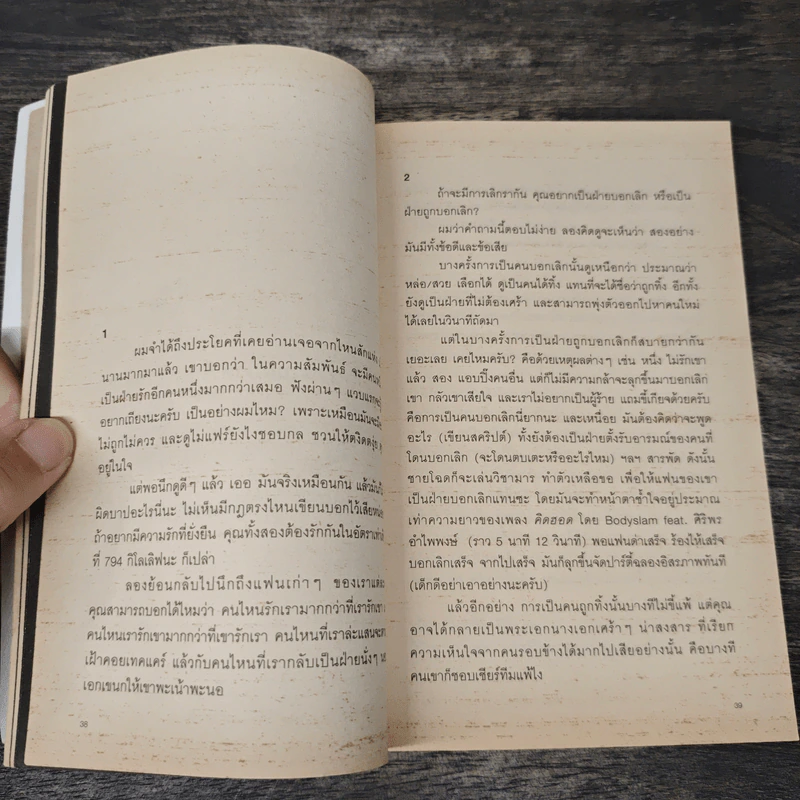 1
ผมจำได้ถึงประโยคที่เคยอ่านเจอจากไหนสักแห่ง
นานมากมาแล้ว เขาบอกว่า ในความสัมพันธ์ จะมีคน
เป็นฝ่ายรักอีกคนหนึ่งมากกว่าเสมอ ฟังผ่านๆ แวบแรก
อยากเถียงนะครับ เป็นอย่างผมไหม? เพราะเหมือนมันจะ
ไม่ถูกไม่ควร และดูไม่แฟร์ยังไงชอบกล ชวนให้ตงิดตงุ่ย
อยู่ในใจ
แต่พอนึกดูดีๆ แล้ว เออ มันจริงเหมือนกัน แล้วมัน
ผิดบาปอะไรนี่นะ ไม่เห็นมีกฎตรงไหนเขียนบอกไว้
ถ้าอยากมีความรักที่ยั่งยืน คุณทั้งสองต้องรักกันในอัตรา
ที่ 794 กิโลเลิฟนะ ก็เปล่า
ลองย้อนกลับไปนึกถึงแฟนเก่าๆ ของเรา
คุณสามารถบอกได้ไหมว่า คนไหนรักเรามากกว่าที่เรารักเขา
คนไหนเรารักเขามากกว่าที่เขารักเรา คนไหนที่เราล่ะแสนจะ
เฝ้าคอยเทคแคร์ แล้วกับคนไหนที่เรากลับเป็นฝ่ายนั่งๆ
เอกเขนกให้เขาพะเน้าพะนอ
38
2
ถ้าจะมีการเลิกรากัน คุณอยากเป็นฝ่ายบอกเลิก หรือเป็น
ฝ่ายถูกบอกเลิก?
ผมว่าคำถามนี้ตอบไม่ง่าย ลองคิดดูจะเห็นว่า สองอย่าง
มันมีทั้งข้อดีและข้อเสีย
บางครั้งการเป็นคนบอกเลิกนั้นดูเหนือกว่า ประมาณว่า
หล่อ/สวย เลือกได้ ดูเป็นคนได้ทิ้ง แทนที่จะได้ชื่อว่าถูกทิ้ง อีกทั้ง
ยังดูเป็นฝ่ายที่ไม่ต้องเศร้า และสามารถพุ่งตัวออกไปหาคนใหม่
ได้เลยในวินาทีถัดมา
แต่ในบางครั้งการเป็นฝ่ายถูกบอกเลิกก็สบายกว่ากัน
เยอะเลย เคยไหมครับ? คือด้วยเหตุผลต่างๆ เช่น หนึ่ง ไม่รักเขา
แล้ว สอง แอบปิ๊งคนอื่น แต่ก็ไม่มีความกล้าจะลุกขึ้นมาบอกเลิก
เขา กลัวเขาเสียใจ และเราไม่อยากเป็นผู้ร้าย แถมขี้เกียจด้วยครับ
คือการเป็นคนบอกเลิกนี่ยากนะ และเหนื่อย มันต้องคิดว่าจะพูด
อะไร (เขียนสคริปต์) ทั้งยังต้องเป็นฝ่ายตั้งรับอารมณ์ของคนที่
โดนบอกเลิก (จะโดนตบเตะหรืออะไรไหม) ฯลฯ สารพัด ดังนั้น
ชายโฉดก็จะเล่นวิชามาร ทำตัวเหลือขอ เพื่อให้แฟนของเขา
เป็นฝ่ายบอกเลิกแทนซะ โดยมันจะทำหน้าตาช้ำใจอยู่ประมาณ
เท่าความยาวของเพลง คิดฮอด โดย Bodyslam feat. ศิริพร
อำไพพงษ์ (ราว 5 นาที 12 วินาที) พอแฟนด่าเสร็จ ร้องไห้เสร็จ
บอกเลิกเสร็จ จากไปเสร็จ มันก็ลุกขึ้นจัดปาร์ตี้ฉลองอิสรภาพทันที
(เด็กดีอย่าเอาอย่างนะครับ)
แล้วอีกอย่าง การเป็นคนถูกทิ้งนั้นบางทีไม่ขี้แพ้ แต่คุณ
อาจได้กลายเป็นพระเอกนางเอกเศร้าๆ น่าสงสาร ที่เรียก
ความเห็นใจจากคนรอบข้างได้มากไปเสียอย่างนั้น คือบางที
คนเขาก็ชอบเชียร์ทีมแพ้ไง
39